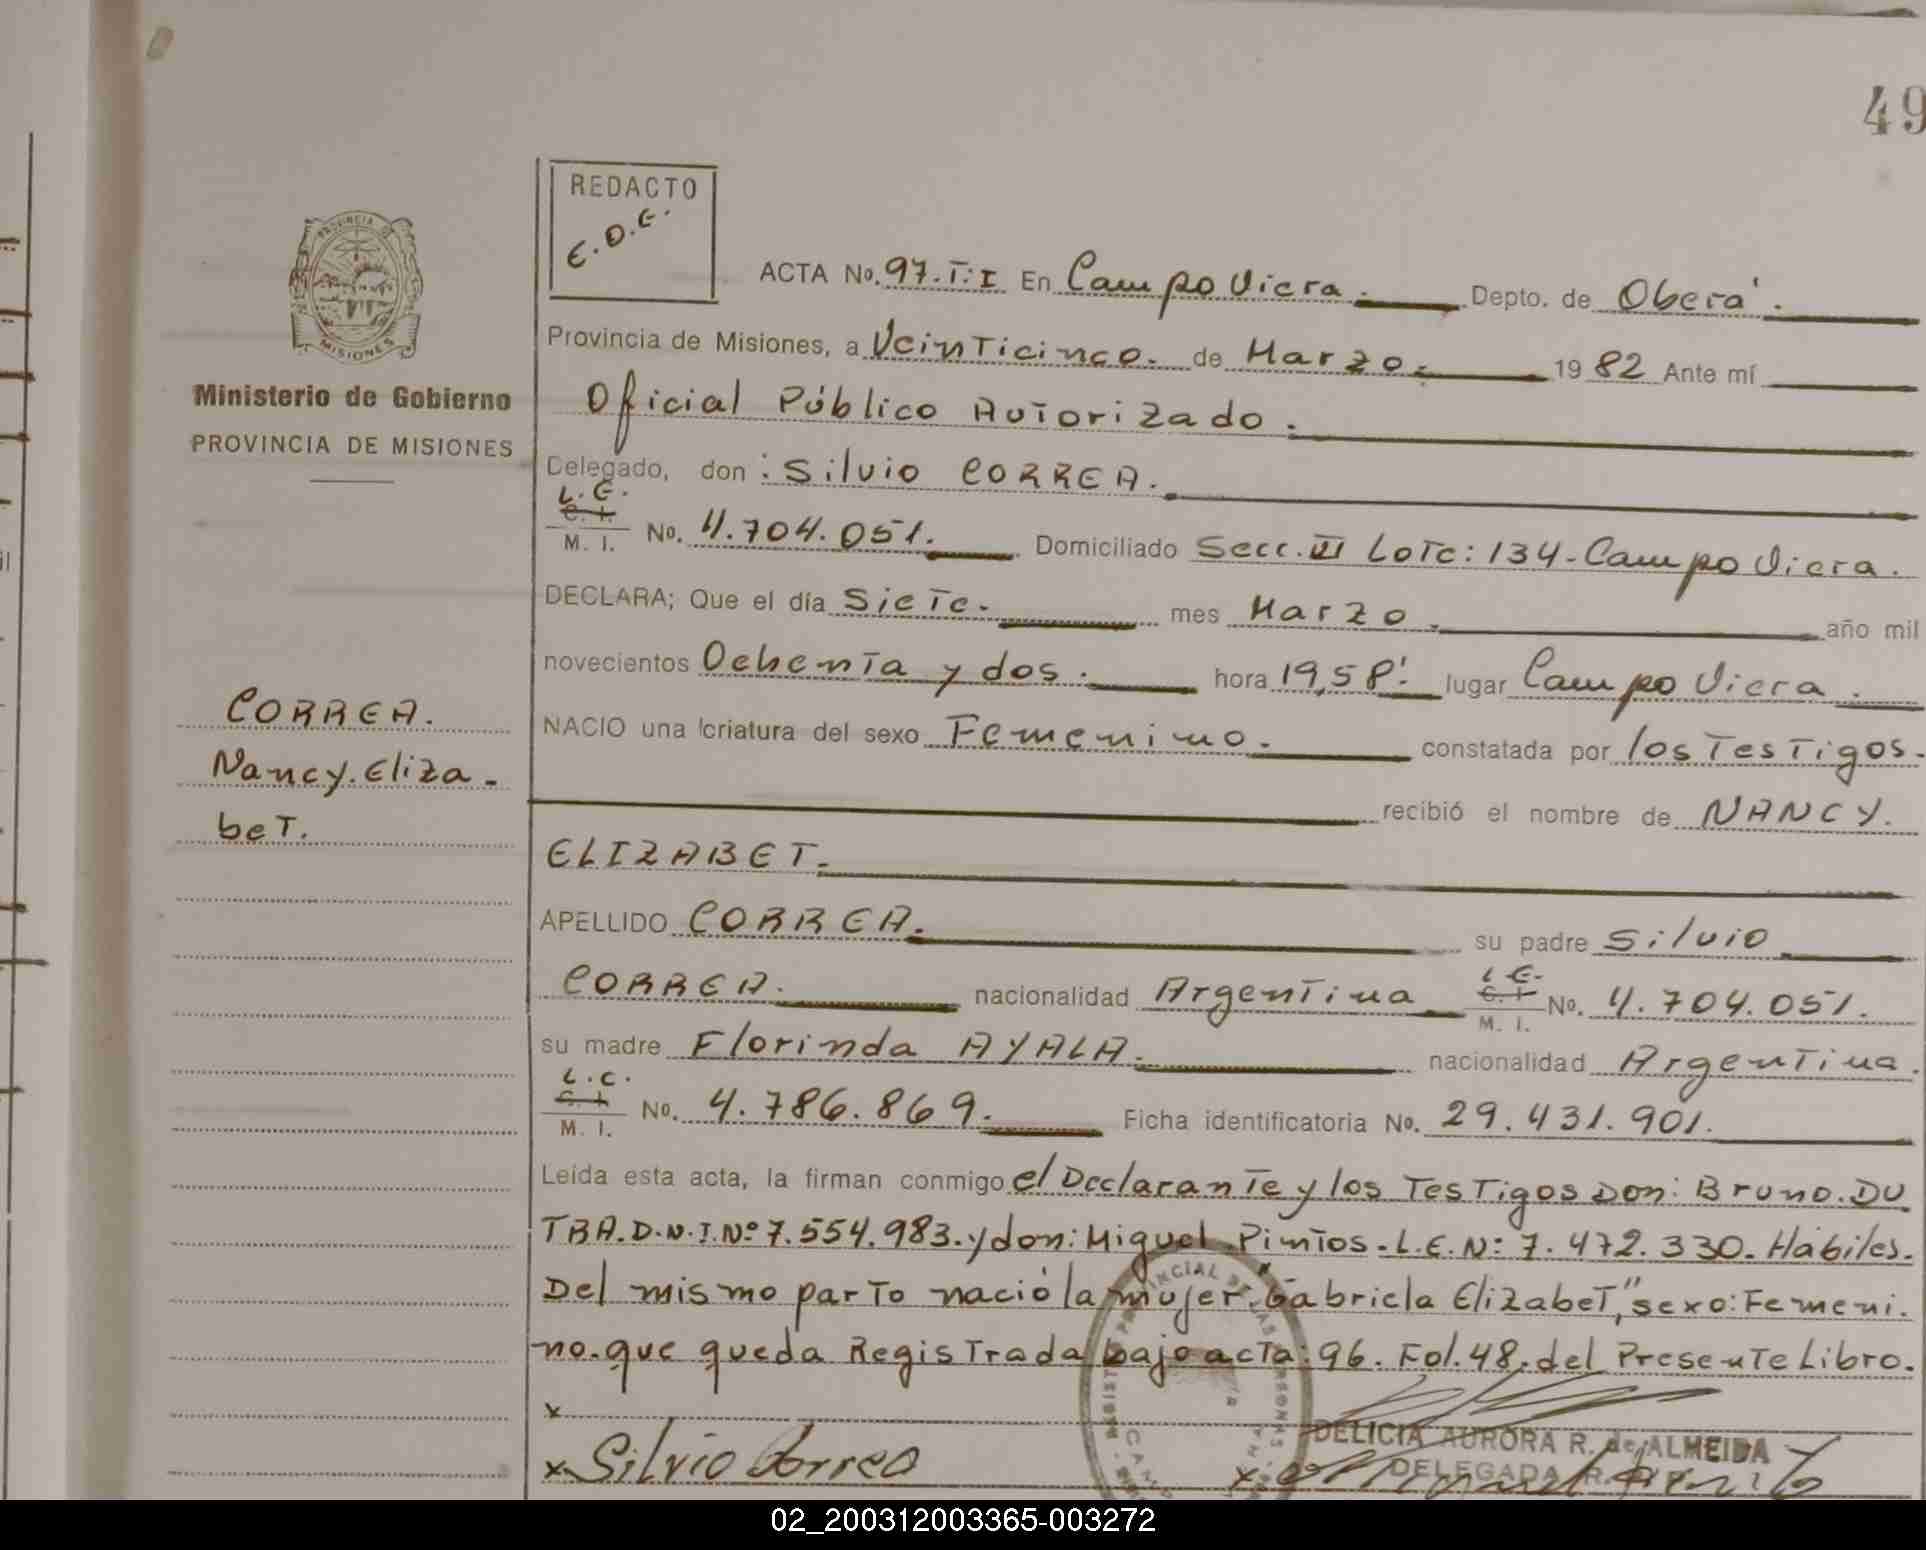 49
REDACTO
E.O.E.
PROVINCIA DE
MISIONES
Ministerio de Gobierno
PROVINCIA DE MISIONES
CORREA.
Nancy. Eliza-
beT.
ACTA No. 97. T: I En Campo Viera. Depto. de Oberá.
Provincia de Misiones, a Veinticinco. de Marzo. 1982 Ante mí
Oficial Público Autorizado.
Delegado, don: Silvio CORREA.
L.E.
C. I.
M. I. No. 4.704.051. Domiciliado Secc. VI Lote: 134-Campo Viera.
DECLARA; Que el día Siete. mes Marzo. año mil
novecientos Ochenta y dos. hora 19,58'. lugar Campo Viera.
NACIO una criatura del sexo Femenino. constatada por los Testigos.
recibió el nombre de NANCY.
ELIZABET.
APELLIDO CORREA. su padre Silvio
CORREA. nacionalidad Argentina L.E. C. I. M. I. No. 4.704.051.
su madre Florinda AYALA. nacionalidad Argentina.
L.C.
C. I.
M. I. No. 4.786.869. Ficha identificatoria No. 29.431.901.
Leída esta acta, la firman conmigo el Declarante y los Testigos Don: Bruno. DU
TRA. D.N.I. Nº 7.554.983. y don: Miguel Pintos. L.E. N: 7.472.330. Hábiles.
Del mismo parto nació la mujer "Gabriela Elizabet", sexo: Femeni.
no. que queda Registrada bajo acta: 96. Fol. 48. del Presente Libro.
x
x Silvio Correa
DELICIA AURORA R. de ALMEIDA
DELEGADA R.
02_200312003365-003272